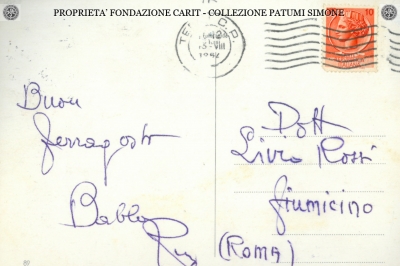 PROPRIETA' FONDAZIONE CARIT - COLLEZIONE PATUMI SIMONE
10
Buon
ferragosto
Babbo
Dott
Livio Rossi
Fiumicino
(ROMA)